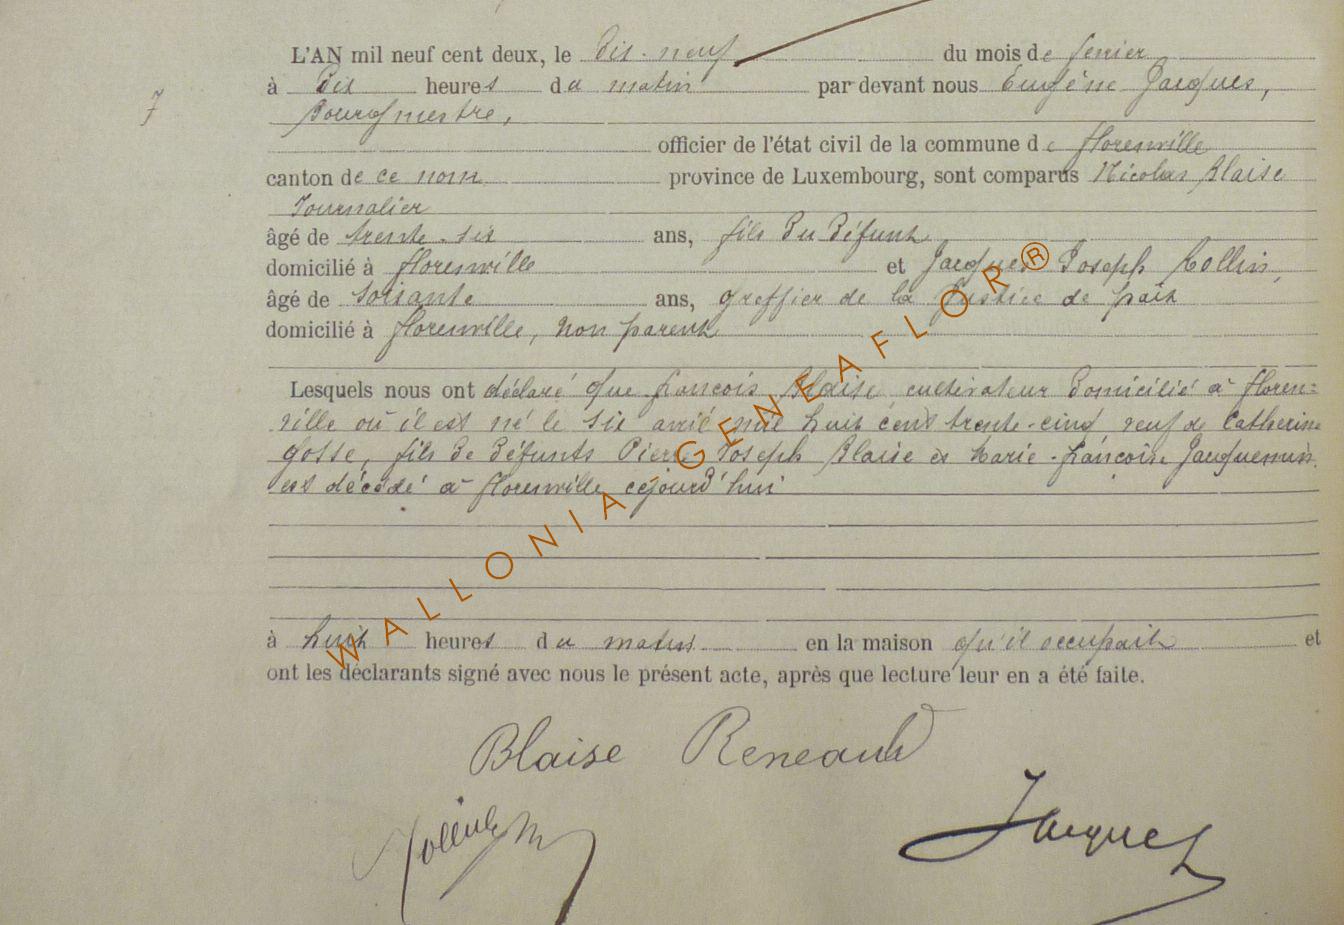 L'AN mil neuf cent deux, le Dix-neuf du mois de fevrier
7
à Dix heures du matin par devant nous Eugène Jacques,
Bourgmestre,
officier de l'état civil de la commune de florenville
canton de ce nom province de Luxembourg, sont comparus Nicolas Blaise
Journalier
âgé de trente-six ans, fils Du Défunt
domicilié à florenville et Jacques Joseph Collin,
âgé de soixante ans, greffier de la Justice de paix
domicilié à florenville, non parent
Lesquels nous ont déclaré que françois Blaise, cultivateur Domicilié à floren=
ville où il est né le six avril mil huit cent trente-cinq veuf de Catherine
Gosse, fils De Défunts Pierre Joseph Blaise et Marie-françoise Jacquemin,
est décédé à florenville cejourd'hui
à huit heures du matin en la maison qu'il occupait et
ont les déclarants signé avec nous le présent acte, après que lecture leur en a été faite.
Blaise Reneault
Collin
Jacques
WALLONIA GENEAFLOR®